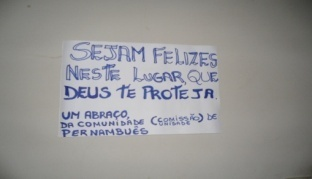 SEJAM FELIZES
NESTE LUGAR, QUE
DEUS TE PROTEJA.
UM ABRAÇO,
DA COMUNIDADE (COMISSÃO) DE
UNIDADE
PERNAMBUÉS